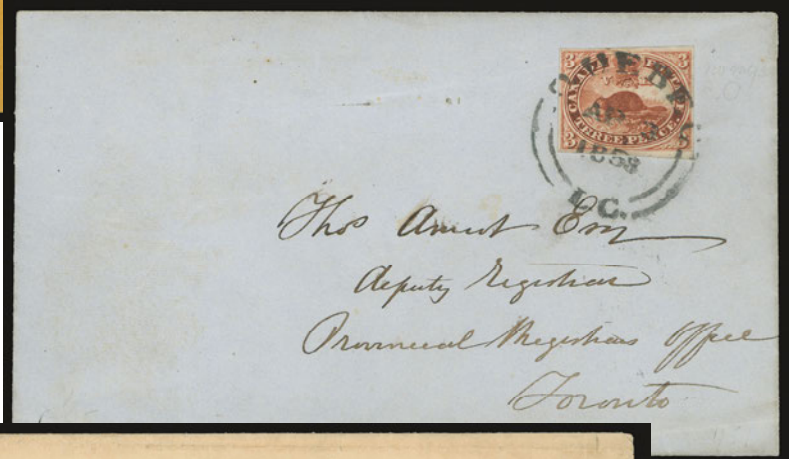 3 3
CANADA POSTAGE
THREE PENCE.
3
QUEBEC
AP
185
L.C.
Thos Esq
Deputy Registrar
Provincial Registrars Office
Toronto